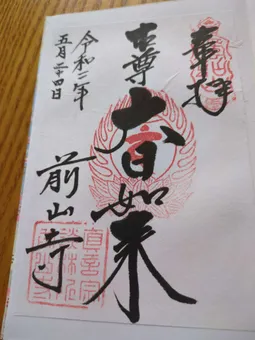 奉拝
本尊
大日如来
前山寺
令和二年
五月二十四日
真言宗